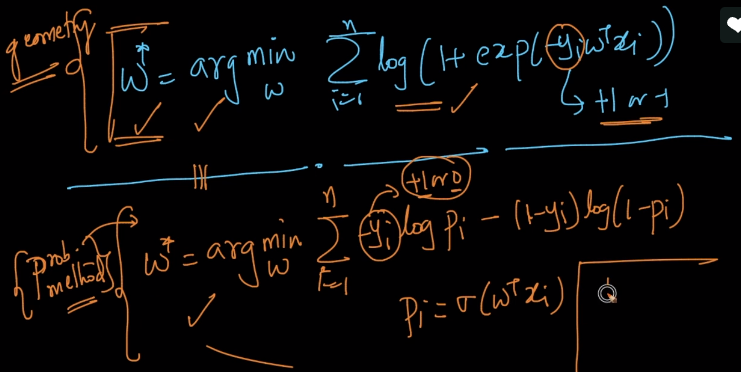 geometry
w* = arg min w Σ i=1 n log(1+ exp(-yi wᵀxi))
+1 or -1
|||
+1 or 0
{prob. method} w* = arg min w Σ i=1 n -yi log pi - (1-yi) log(1-pi)
pi = σ(wᵀxi)